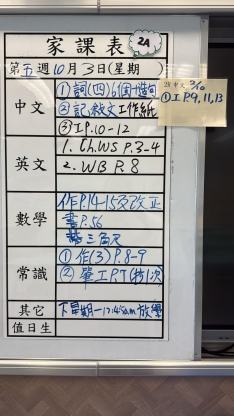 家課表 2A
第五週10月3日(星期 )
2A 中文 3/10
①工P.9,11,13
中文 ①詞(四)6個+造句
②記敘文工作紙
③工P.10-12
英文 1. Ch.WS P.3-4
2. WB P.8
數學 作P.14-15及改正
書P.56
三角尺
常識 ①作(3)P.8-9
②單工P.T(持)次
其它 下星期一12:45a.m.放學
值日生